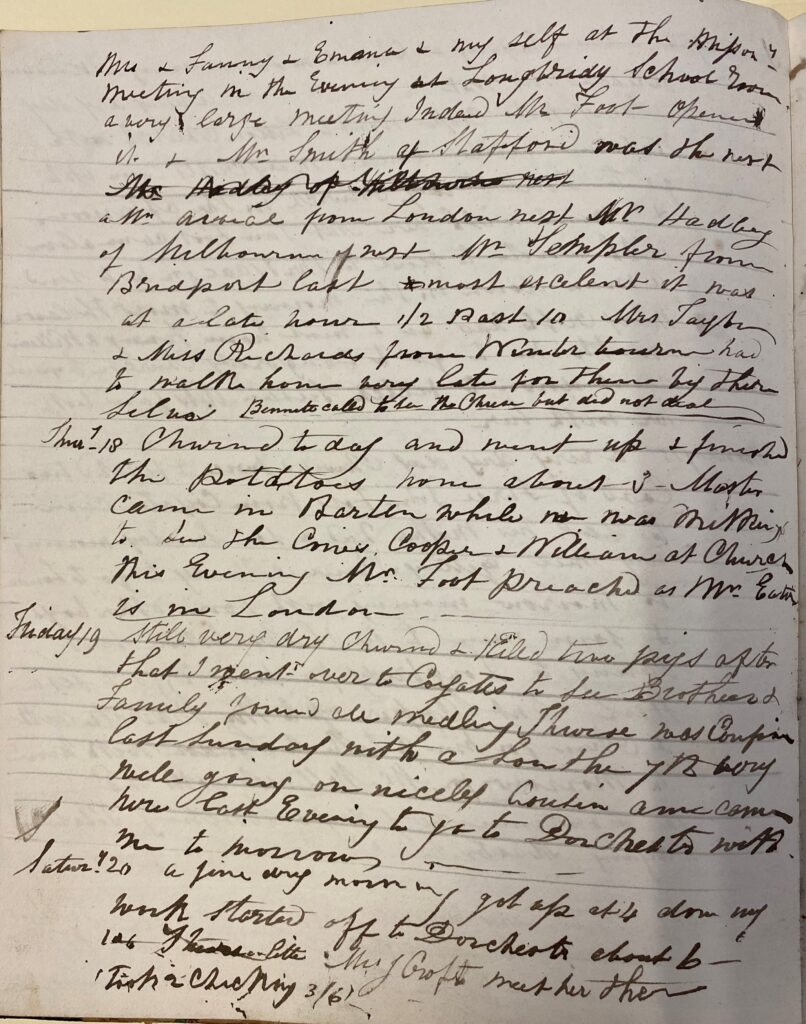 Mrs & Fanny & Emma & my self at the Mission y
meeting in the Evening at Longbridy School Room
a very large meeting Indeed Mr Foot opened
it & Mr Smith of Stafford was the next
Mr Hadley of Milbourne next
a Mr from London next Mr Hadley
of Milbourne next Mr Sempler from
Bridport last most excelent it was
at a late hour 1/2 Past 10 Mrs Taylor
& Miss Richards from Winterbourne had
to walk home very late for them by there
Selvs Bennett called to see the Cheese but did not deal
Thurs 18 Churnd to day and went up & finished
the Potatoes home about 3 Master
came in Barten while was Milking
to see the Cows, Cooper & William at Church
this Evening Mr Foot preached as Mr
is in London
Friday 19 Still very dry Churnd & Killed two pigs after
that I went over to Cogates to see Brother &
Family found all midling was
last Sunday with a Son the 7th very
well going on nicely Cousin came
here last Evening to go to Dorchester with
me to morrow
Satur.y 20 a fine dry morning got up at 4 done my
work started off to Dorchester about 6
Mrs J Croft met her there
took 2 3/6